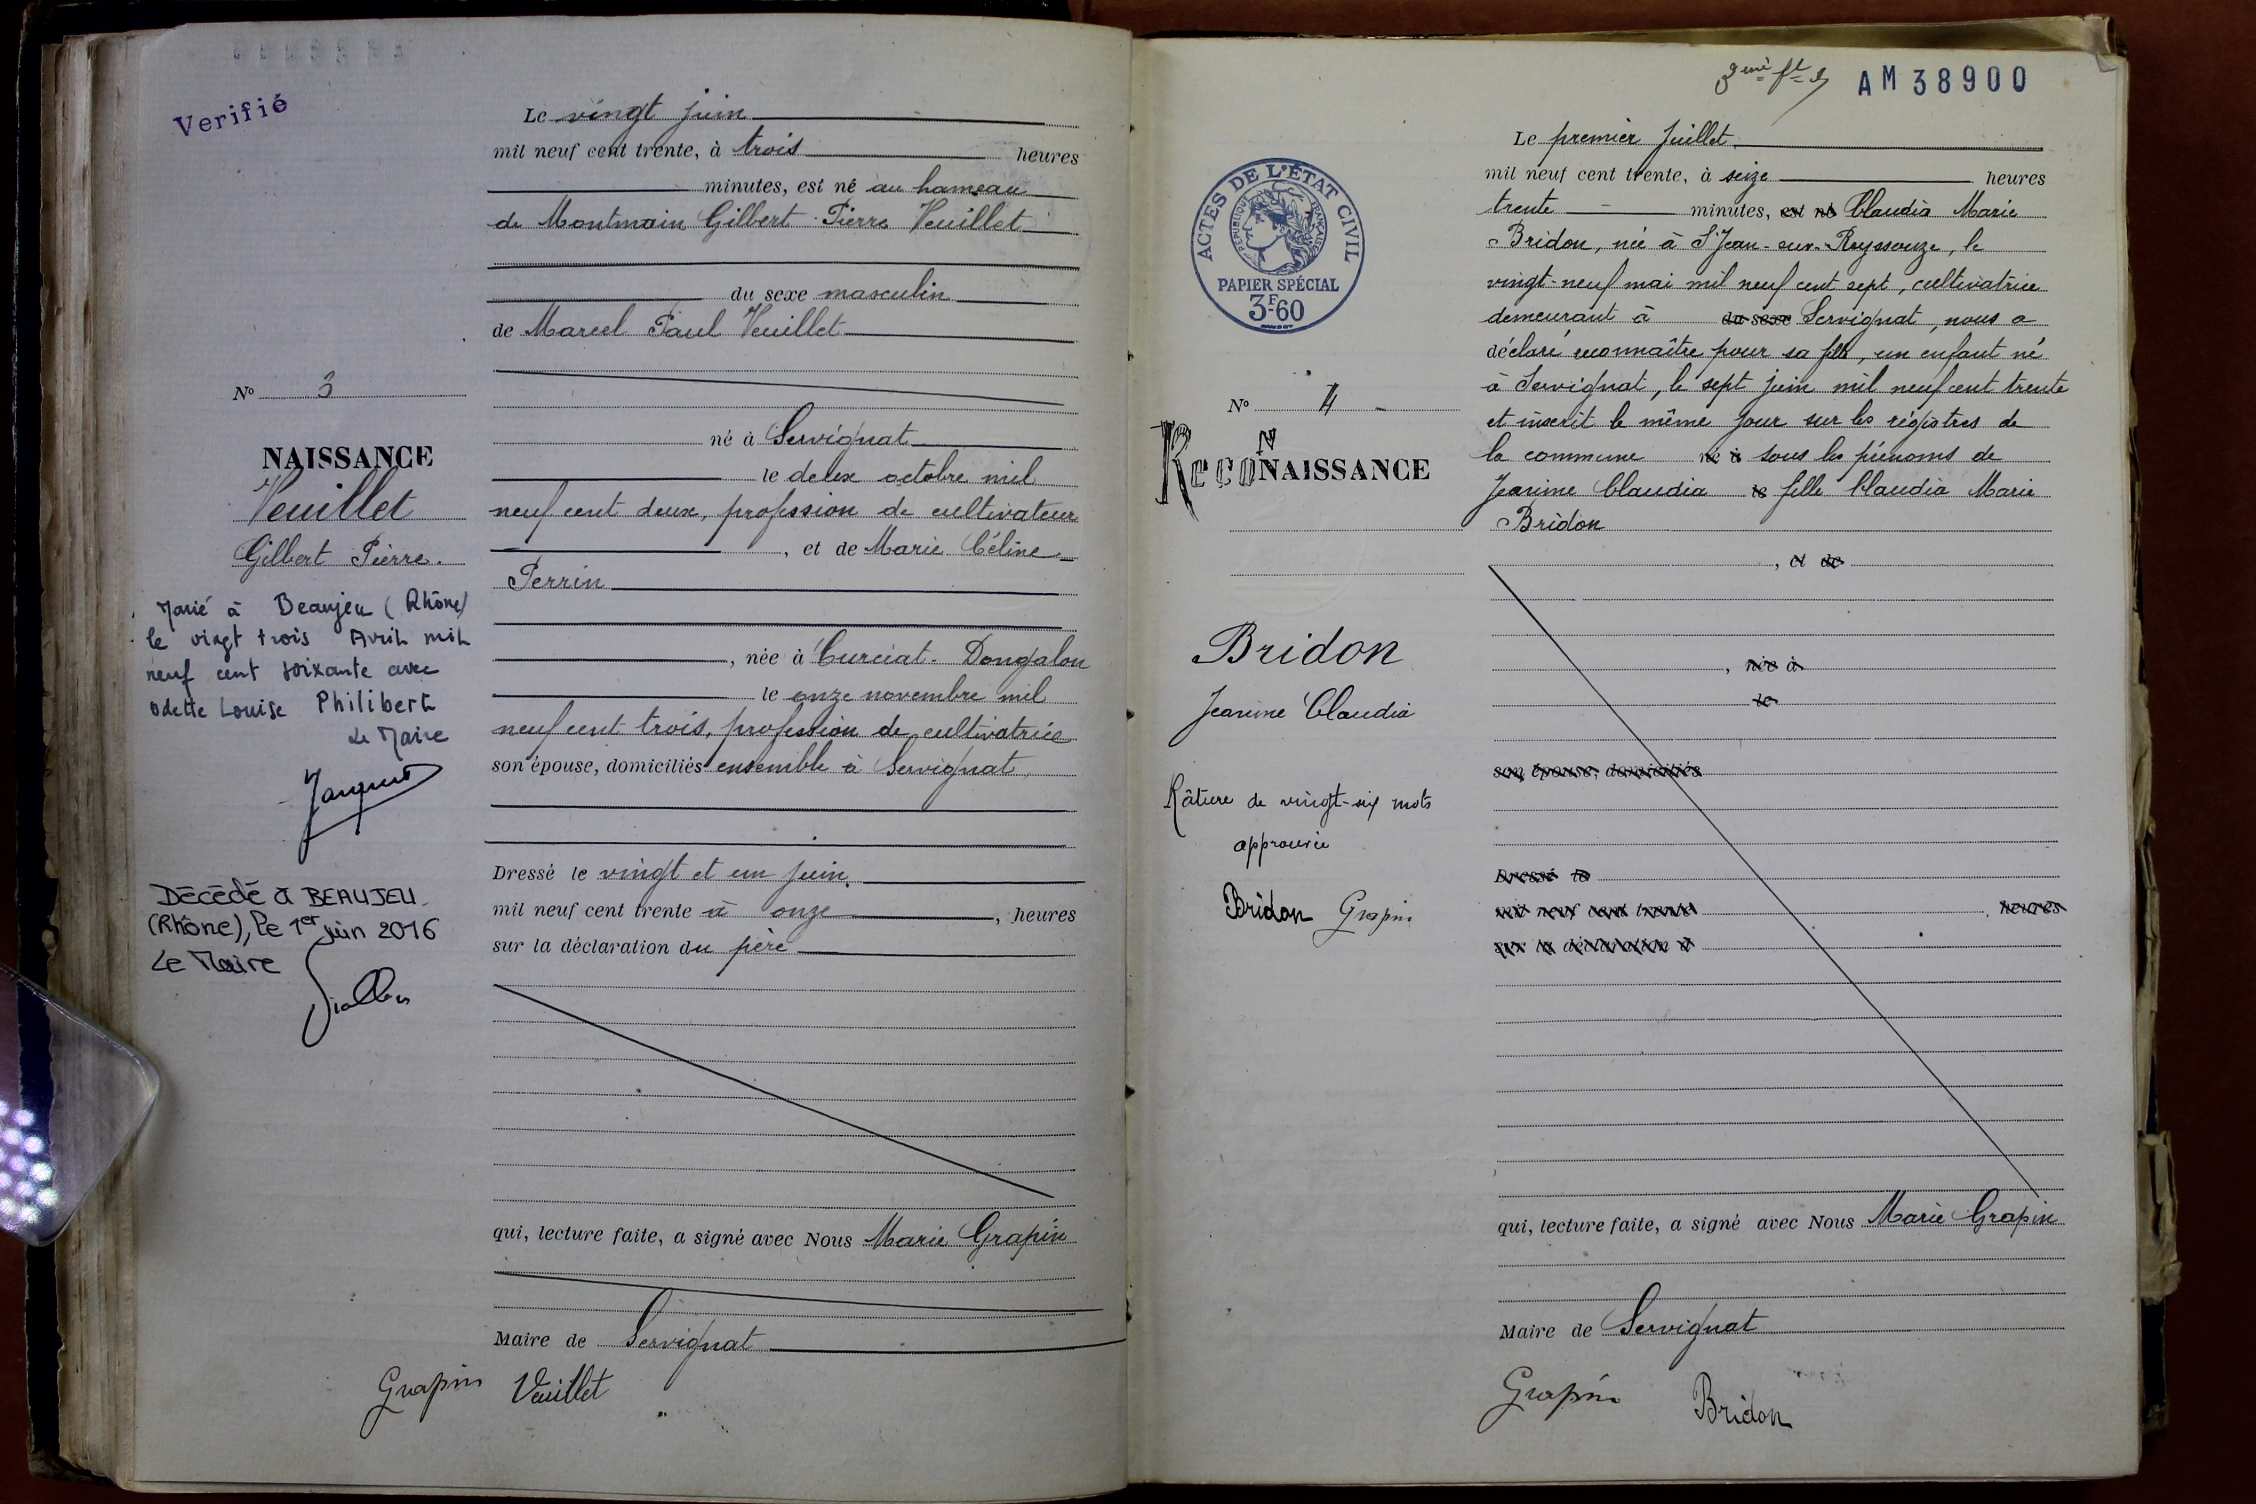 Verifié
Le vingt juin
mil neuf cent trente, à trois heures
minutes, est né au hameau
de Montmain Gilbert Pierre Veuillet
du sexe masculin
de Marcel Paul Veuillet
né à Servignat
le deux octobre mil
neuf cent deux, profession de cultivateur
, et de Marie Céline
Perrin
, née à Curciat-Dongalon
le onze novembre mil
neuf cent trois, profession de cultivatrice
son épouse, domiciliés ensemble à Servignat
Dressé le vingt et un juin
mil neuf cent trente à onze, heures
sur la déclaration du père
qui, lecture faite, a signé avec Nous Marie Grapin
Maire de Servignat
Grapin Veuillet
No 3
NAISSANCE
Veuillet
Gilbert Pierre.
Marié à Beaujeu (Rhône)
le vingt trois Avril mil
neuf cent soixante avec
Odette Louise Philibert
Le Maire
Décédé à BEAUJEU
(Rhône), le 1er juin 2016
Le Maire
AM 38900
ACTES DE L'ÉTAT CIVIL
RÉPUBLIQUE FRANÇAISE
PAPIER SPÉCIAL
3F-60
Le premier Juillet
mil neuf cent trente, à seize heures
trente minutes, est né Claudia Marie
Bridon, née à St Jean-sur-Reyssouze, le
vingt-neuf mai mil neuf cent sept, cultivatrice
demeurant à du sexe Servignat, nous a
déclaré reconnaître pour sa fille, un enfant né
à Servignat, le sept juin mil neuf cent trente
et inscrit le même jour sur les régistres de
la commune né à sous les prénoms de
Jeanine Claudia le fille Claudia Marie
Bridon
, et de
, née à
le
son épouse, domiciliés
Dressé le
mil neuf cent trente , heures
sur la déclaration d
qui, lecture faite, a signé avec Nous Marie Grapin
Maire de Servignat
Grapin Bridon
No 4
RecoNNAISSANCE
Bridon
Jeanine Claudia
Râture de vingt-six mots
approuvée
Bridon Grapin